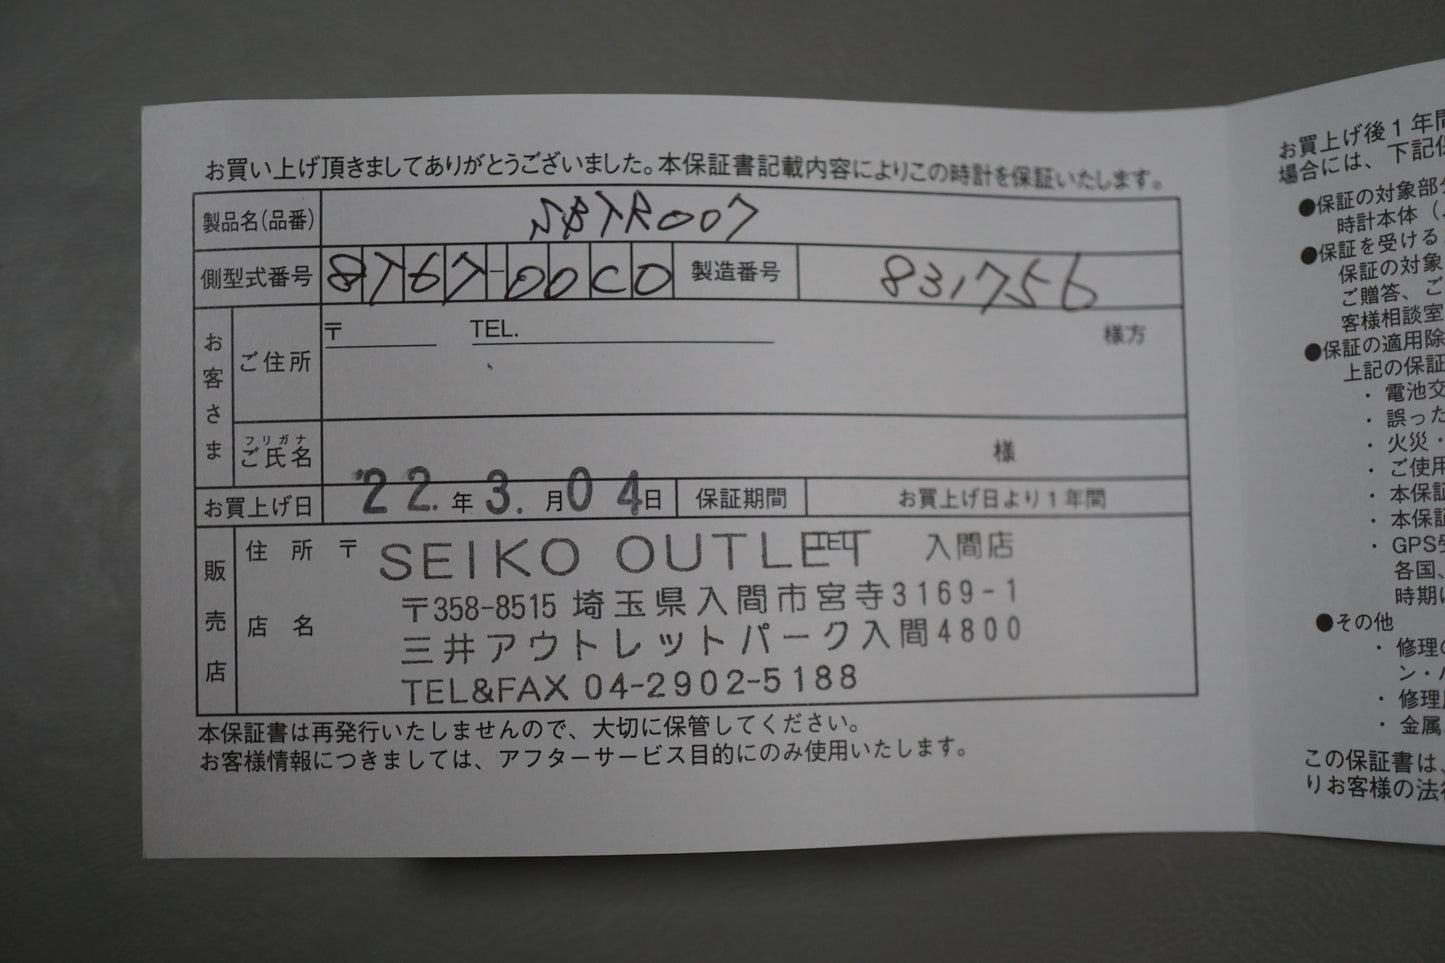 お買い上げ頂きましてありがとうございました。本保証書記載内容によりこの時計を保証いたします。
製品名(品番) SBTR007
側型式番号 8T67-00C0 製造番号 831756
お客さま
ご住所 〒 TEL. 様方
フリガナ
ご氏名 様
お買上げ日 '22.年 3.月 04日 保証期間 お買上げ日より1年間
販売店
住所 〒 SEIKO OUTLET 入間店
〒358-8515 埼玉県入間市宮寺3169-1
店名 三井アウトレットパーク入間4800
TEL&FAX 04-2902-5188
本保証書は再発行いたしませんので、大切に保管してください。
お客様情報につきましては、アフターサービス目的にのみ使用いたします。
お買上げ後1年間
場合には、下記
●保証の対象部
時計本体(
●保証を受ける
保証の対象
ご贈答、ご
客様相談室
●保証の適用除
上記の保証
・電池交
・誤った
・火災・
・ご使用
・本保証
・本保証
・GPS
各国、
時期
●その他
・修理
ン・
・修理
・金属
この保証書は、
りお客様の法